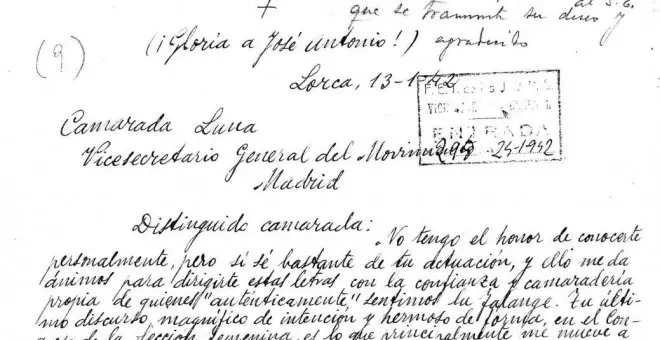 al S. G.
que se transmita su deseo y
(9)
(¡Gloria a José António!) agradecido
Lorca, 13-1-42
F. E. T.
ENTRADA
295 24-1942
Camarada Luna
Vicesecretario General del Movimi
Madrid
Distinguido camarada:
No tengo el honor de conocerte
personalmente, pero sí sé bastante de tu actuación, y ello me da
ánimos para dirigirte estas letras con la confianza y camaradería
propia de quienes "auténticamente" sentimos la Falange. Tu últi-
mo discurso, magnífico de intención y hermoso de forma, en el Con-
de la Sección Femenina, es lo que principalmente me mueve a